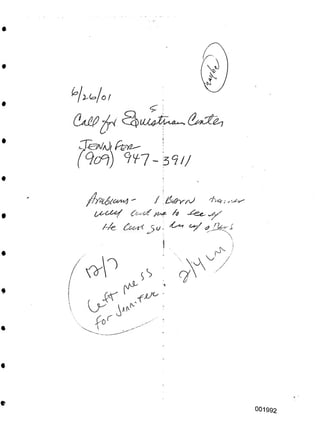 maybe
6/26/01
5
Call for Equestrian Center
Jennifer
(909) 947-3911
Arabians - 1 Barn trainer
will call me to see if
He can
12/7
Left mess
for Jennifer.
2/4 LM
001992